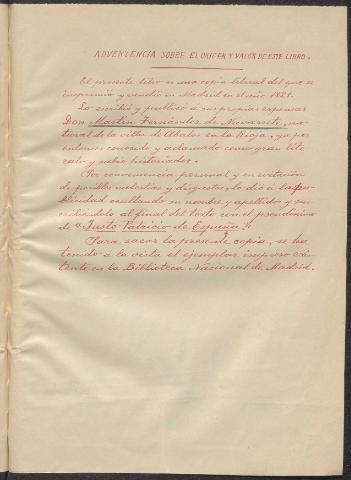 ADVERTENCIA SOBRE EL ORIGEN Y VALOR DE ESTE LIBRO.
El presente libro es una copia literal del que se
imprimió y vendió en Madrid en el año 1821.
Lo escribió y publicó a sus propias expensas
Don Martín Fernández de Navarrete, na-
tural de la villa de Abalos en la Rioja, que por
entonces conocido y aclamado como gran lite
rato y sabio historiador.
Por conveniencia personal y en evitación
de posibles molestias y disgustos, lo dió a la pu-
blicidad ocultando su nombre y apellido y sus-
cribiéndolo al final del texto con el pseudónimo
de "Justo Patricio de España".
Para sacar la presente copia, se ha
tenido a la vista el ejemplar impreso exis-
tente en la Biblioteca Nacional de Madrid.